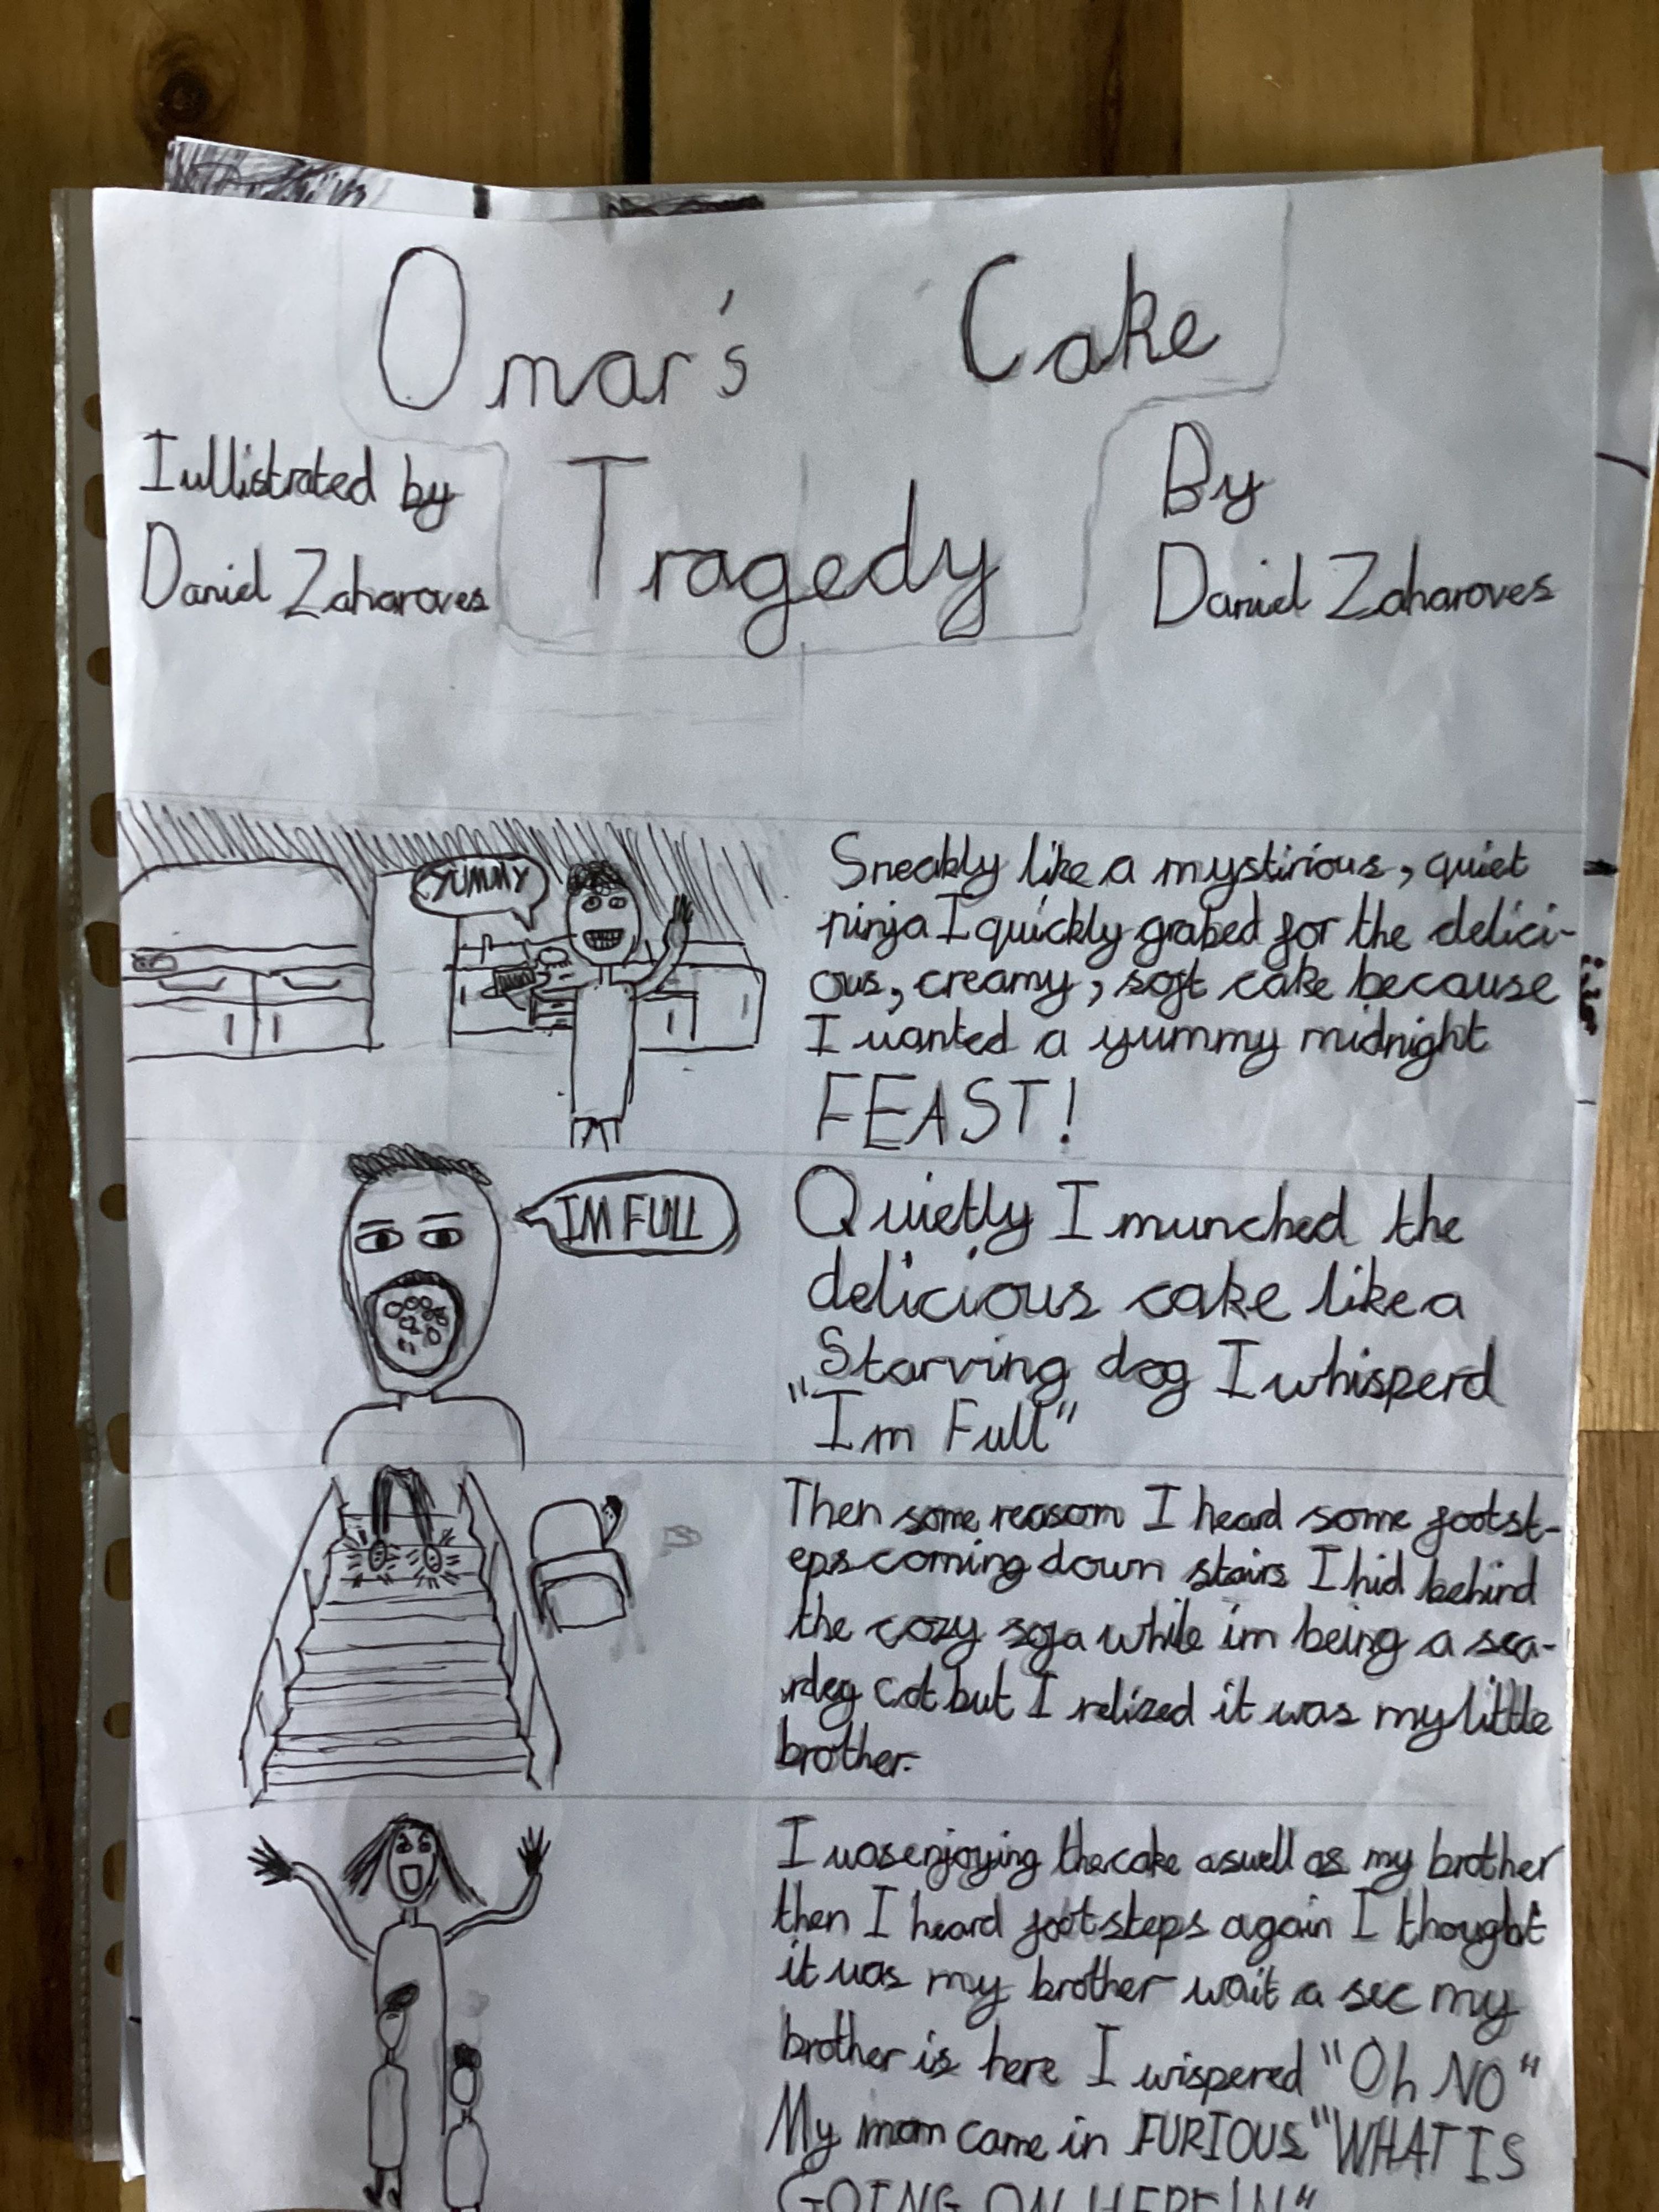 Omar's Cake
Tragedy
Iullistrated by
Daniel Zaharoves
By
Daniel Zaharoves
YUMMY
Sneakly like a mystirious, quiet
ninja I quickly grabed for the delici-
ous, creamy, soft cake because
I wanted a yummy midnight
FEAST!
IM FULL
Quietly I munched the
delicious cake like a
Starving dog I whisperd
"Im Full"
Then some reason I heard some footst-
eps coming down stairs I hid behind
the cozy sofa while im being a sca-
rdey cat but I relized it was my little
brother.
I was enjoying the cake aswell as my brother
then I heard footsteps again I thought
it was my brother wait a sec my
brother is here I wispered "Oh NO"
My mom came in FURIOUS "WHAT IS
GOING ON HERE!"